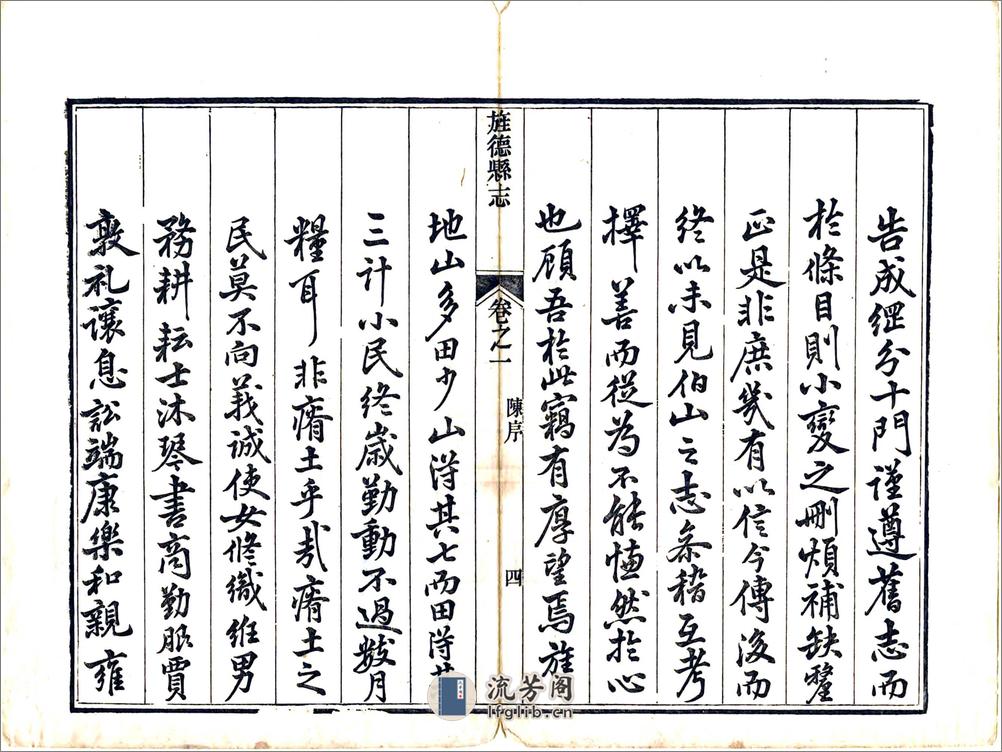 告成綱分十門謹遵舊志而
於條目則小變之刪煩補缺釐
正是非庶幾有以信今傳後而
終以未見伯山之志叅稽互考
擇善而從為不能慊然於心
也顧吾於此竊有厚望焉旌
旌德縣志
卷之一
陳序
四
地山多田少山淂其七而田淂其
三計小民終歲勤動不過數月
糧耳非瘠土乎哉瘠土之
民莫不向義誠使女修織維男
務耕耘士沐琴書商勤服賈
敦礼讓息訟端康樂和親雍
流芳阁
lfglib.cn